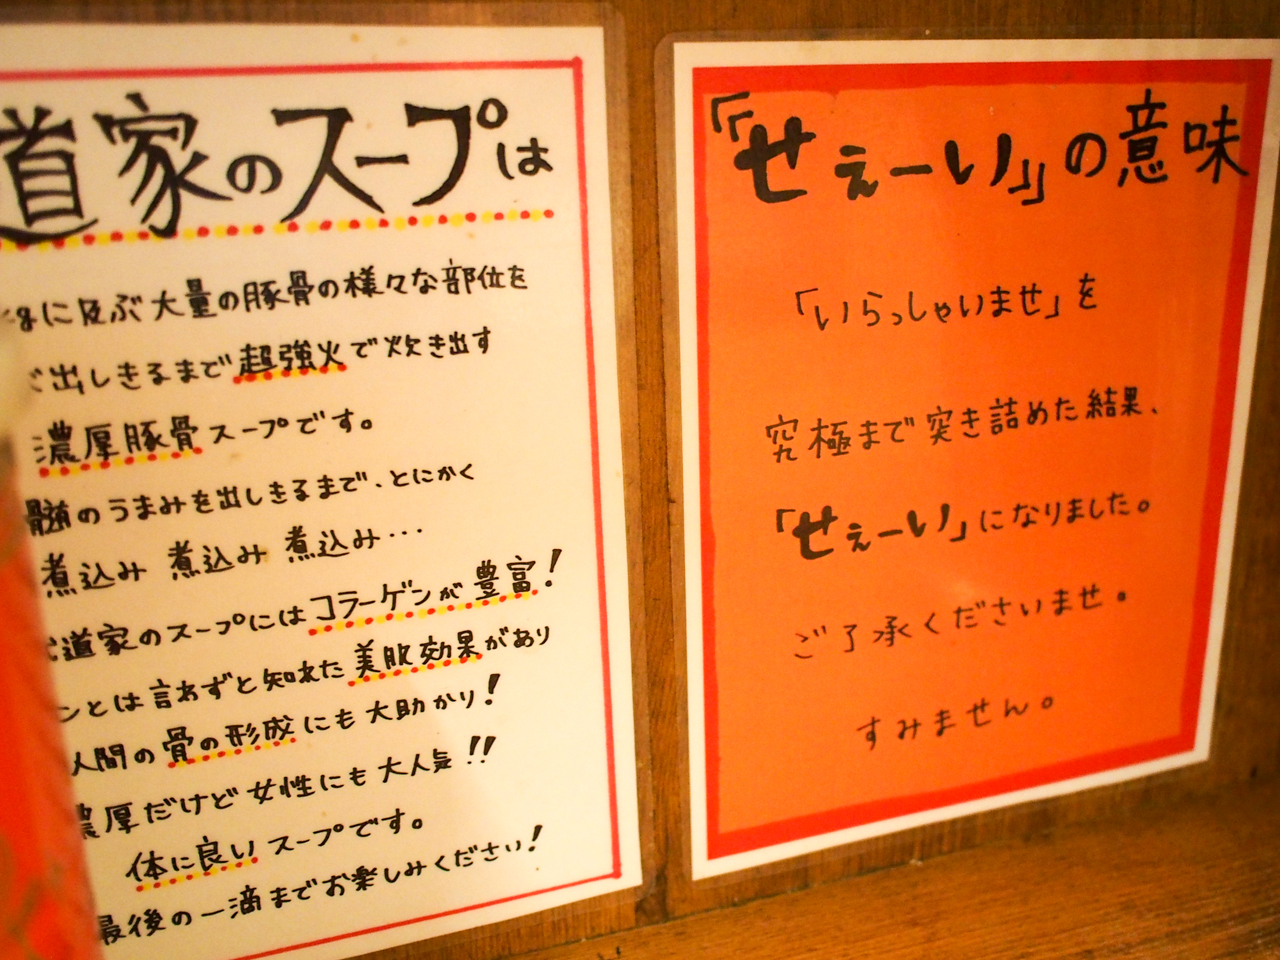 道家のスープは
に及ぶ大量の豚骨の様々な部位を
出しきるまで超強火で炊き出す
濃厚豚骨スープです。
髄のうまみを出しきるまで、とにかく
煮込み 煮込み 煮込み・・・
道家のスープにはコラーゲンが豊富!
ンとは言わずと知れた美肌効果があり
人間の骨の形成にも大助かり!
濃厚だけど女性にも大人気!!
体に良いスープです。
最後の一滴までお楽しみください!
『「せぇーい」』の意味
「いらっしゃいませ」を
究極まで突き詰めた結果、
「せぇーい」になりました。
ご了承くださいませ。
すみません。